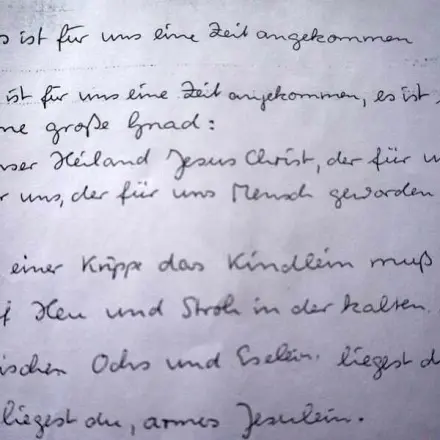 s ist für uns eine Zeit angekommen
ist für uns eine Zeit angekommen, es ist
ne große Gnad:
nser Heiland Jesus Christ, der für u
r uns, der für uns Mensch geworden
einer Krippe das Kindlein muß
f Heu und Stroh in der kalten
ischen Ochs und Eselein, liegest d
liegest du, armes Jesulein.